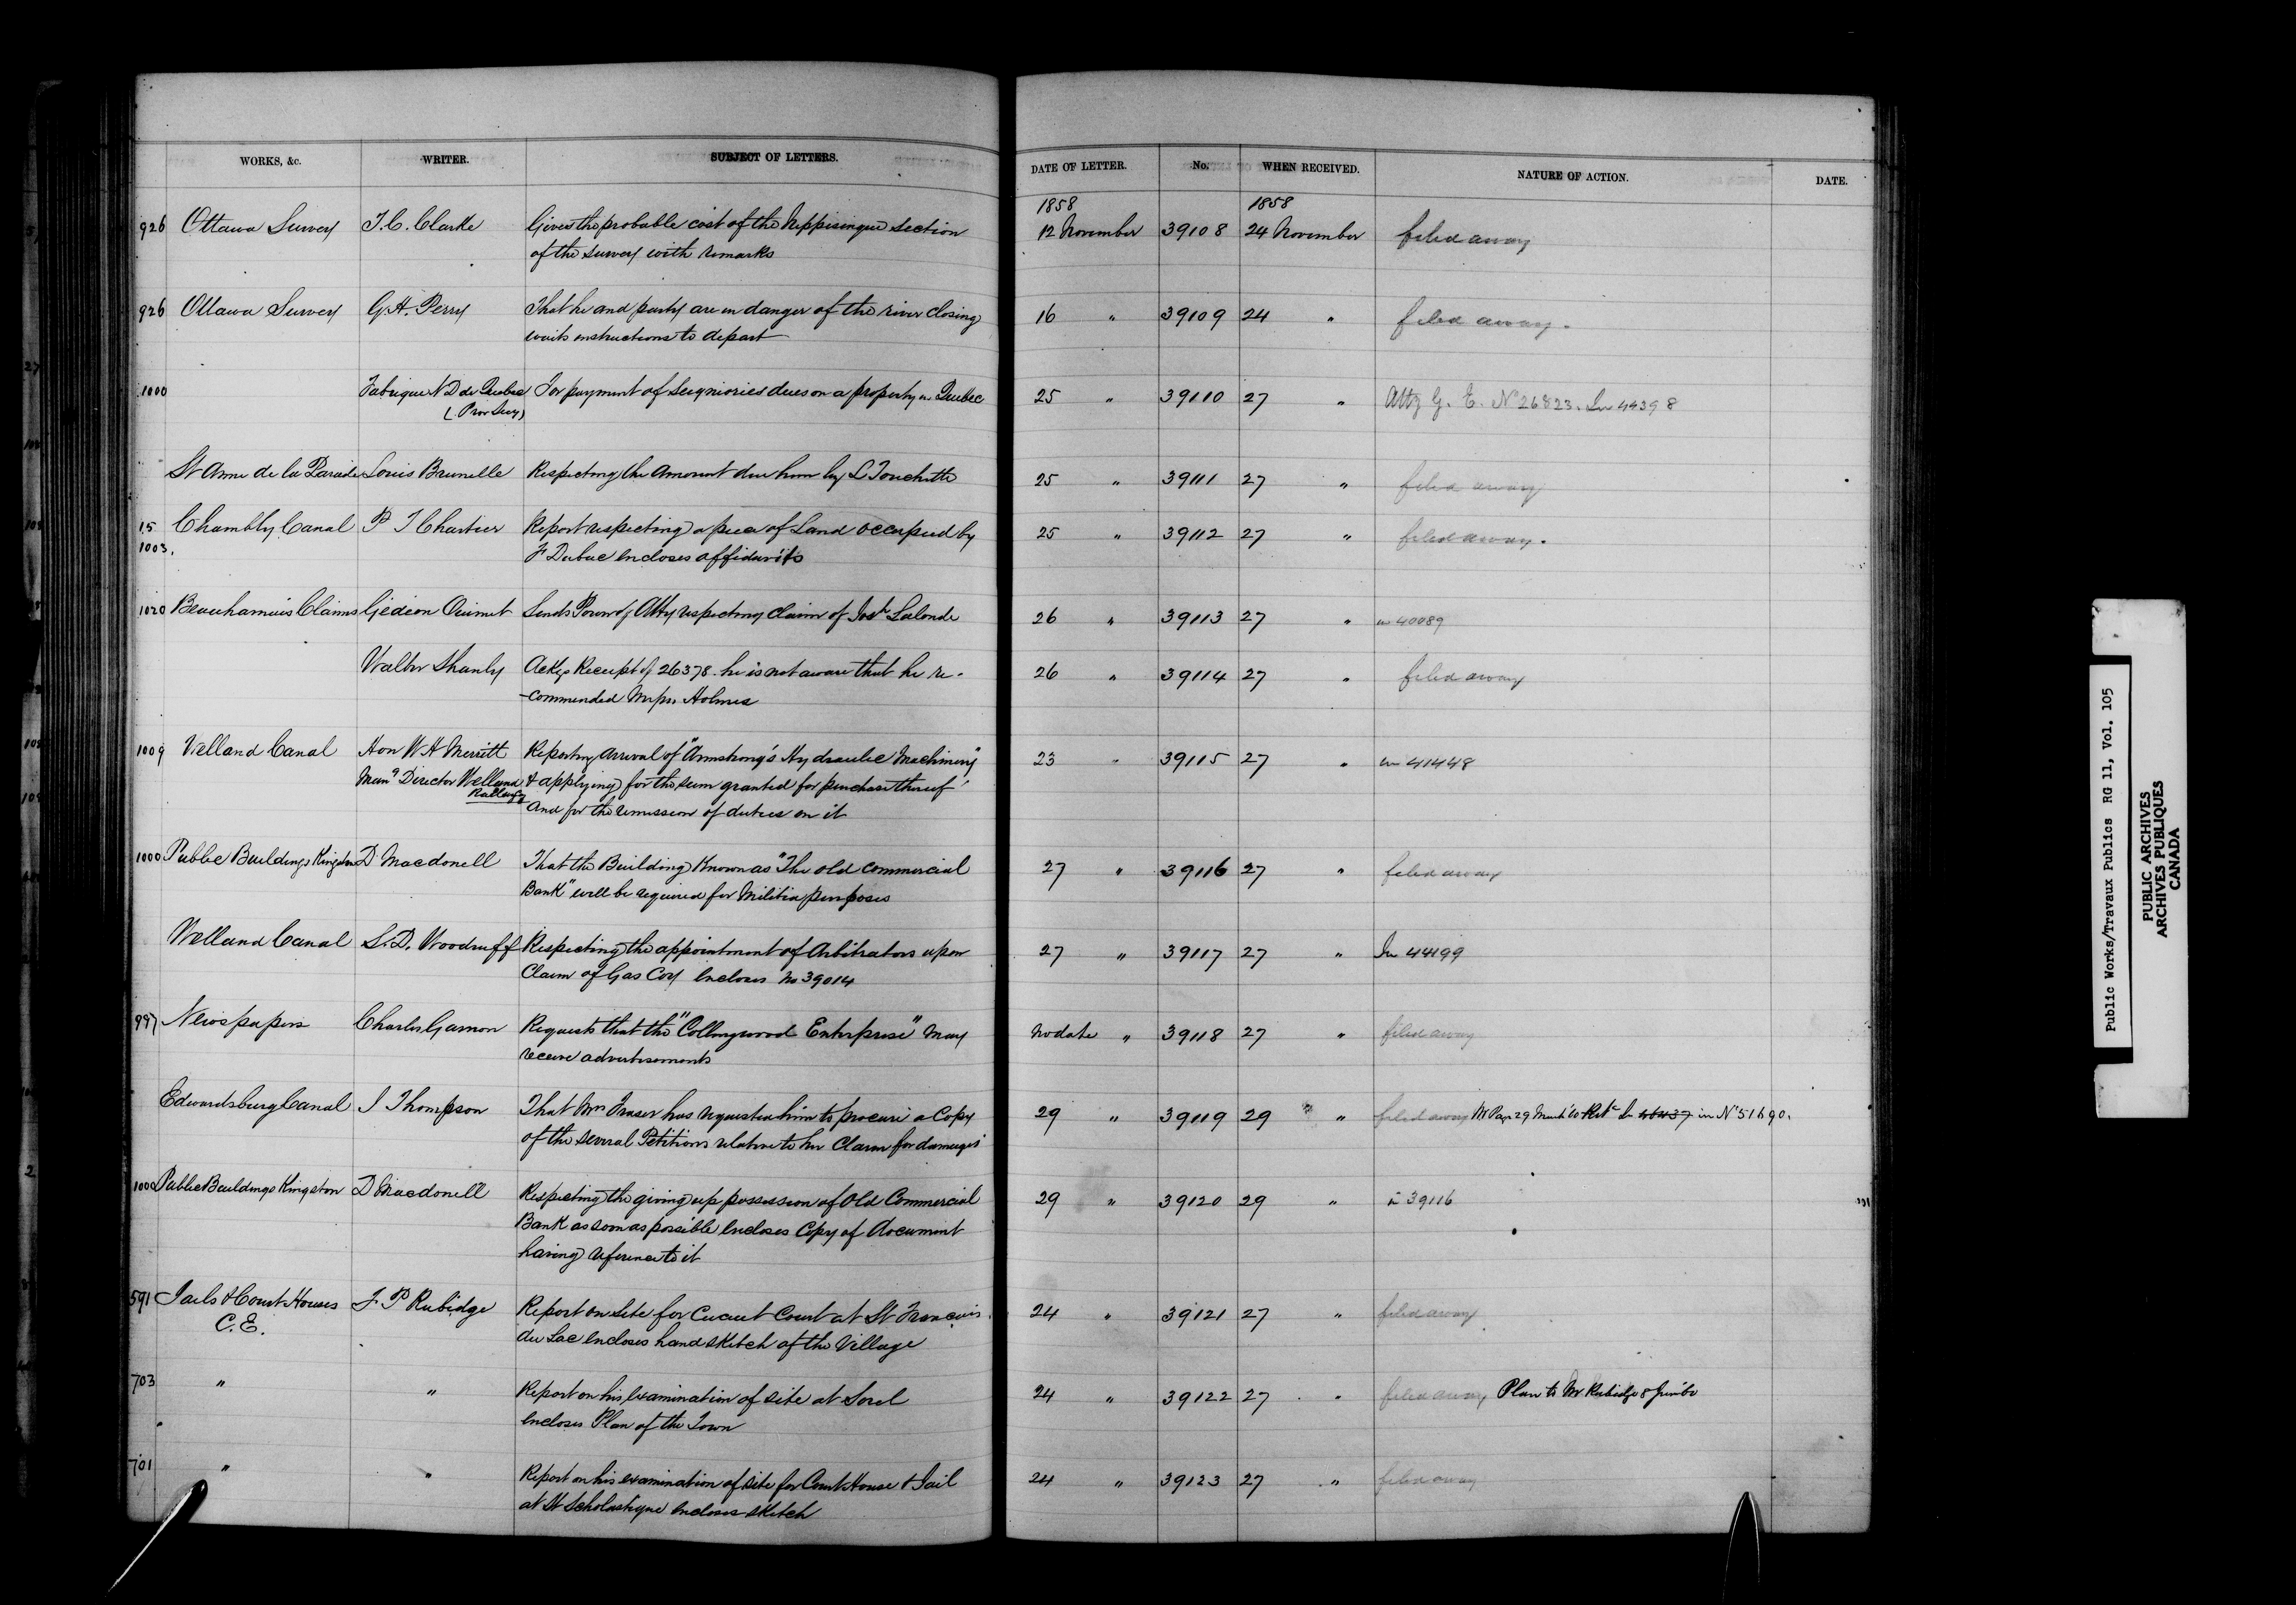 WORKS, &c. WRITER. SUBJECT OF LETTERS. DATE OF LETTER. No. WHEN RECEIVED. NATURE OF ACTION. DATE.
1858 1858
926 Ottawa Survey T. C. Clarke Gives the probable cost of the Nippisingue section 12 November 39108 24 November filed away
of the survey with remarks
926 Ottawa Survey G. H. Perry That he and party are in danger of the river closing 16 " 39109 24 " filed away.
waits instructions to depart
1000 Fabrique N D de Quebec For payment of Seigniories dues on a property in Quebec 25 " 39110 27 " Atty G. E. No 26823. In 44398
(Prov Secy)
St Anne de la Parade Louis Brunelle Respecting the amount due him by L Touchette 25 " 39111 27 " filed away
15 Chambly Canal P J Chartier Report respecting a piece of Land occupied by 25 " 39112 27 " filed away.
1003. F Dubuc encloses affidavits
1020 Beauharnois Claims Gedeon Ouimet Sends Power of Atty respecting Claim of Josh Lalonde 26 " 39113 27 " in 40089
Walter Shanly Ackgs Receipt of 26378. he is not aware that he re- 26 " 39114 27 " filed away
-commended Holmes
1009 Welland Canal Hon W H Merritt Reporting arrival of "Armstrong's Hydraulic Machinery" 23 " 39115 27 " in 41448
Mang Director Welland & applying for the sum granted for purchase thereof
Railway and for the remission of duties on it
1000 Public Buildings Kingston D Macdonell That the Building Known as "The old Commercial 27 " 39116 27 " filed away
Bank" will be required for Militia purposes
Welland Canal S. D. Woodruff Respecting the appointment of Arbitrators upon 27 " 39117 27 " In 44199
Claim of Gas Coy Encloses No 39014
997 Newspapers Charles Gamon Requests that the "Collingwood Enterprise" may No date " 39118 27 " filed away
receive advertisements
Edwardsburg Canal J Thompson That Mrs Fraser has requested him to procure a Copy 29 " 39119 29 " filed away Mr Page 29 March '60 Retd In 46437 in No 51690.
of the several Petitions relative to her Claim for damages
1000 Public Buildings Kingston D Macdonell Respecting the giving up possession of Old Commercial 29 " 39120 29 " in 39116
Bank as soon as possible encloses Copy of document
having reference to it
591 Jails & Court Houses F. P. Rubidge Report on site for Circuit Court at St Francois 24 " 39121 27 " filed away
C. E. du Lac encloses hand sketch of the Village
703 " " Report on his examination of site at Sorel 24 " 39122 27 " filed away Plan to Mr Rubidge 8
encloses Plan of the Town
701 " " Report on his examination of site for Court House & Jail 24 " 39123 27 " filed away
at St Scholastique encloses sketch
Public Works/Travaux Publics RG 11, Vol. 105
PUBLIC ARCHIVES
ARCHIVES PUBLIQUES
CANADA